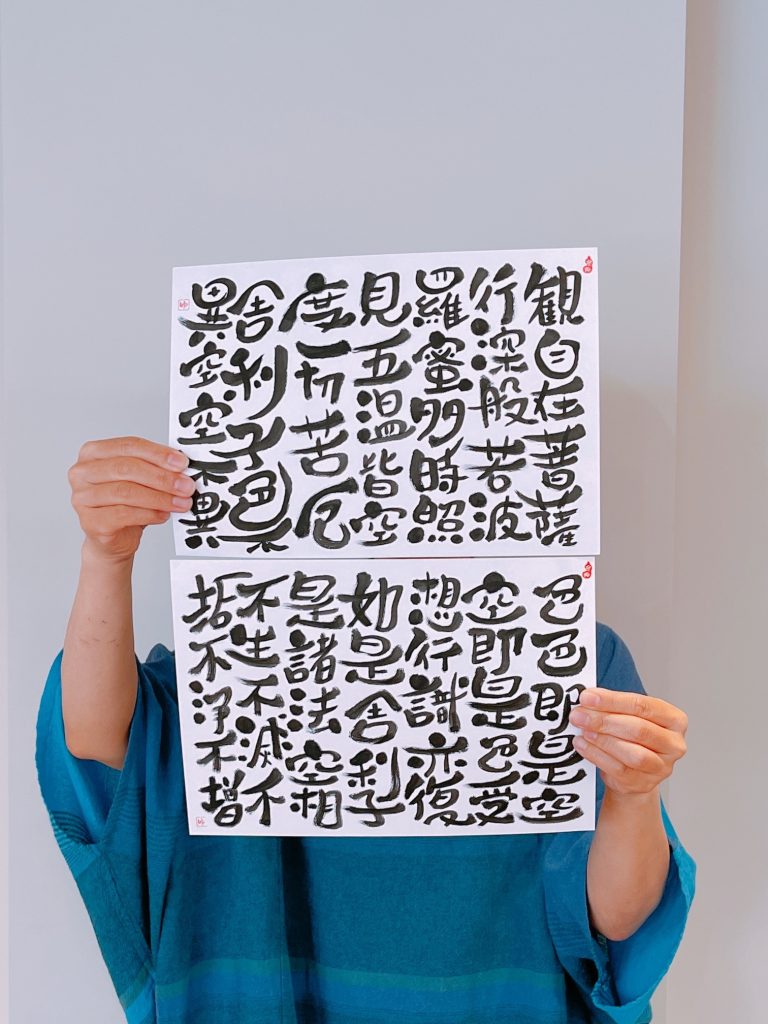 観自在菩薩
行深般若波
羅蜜多時照
見五温皆空
度一切苦厄
舎利子色不
異空空不異
色色即是空
空即是色受
想行識亦復
如是舎利子
是諸法空相
不生不滅不
垢不浄不増